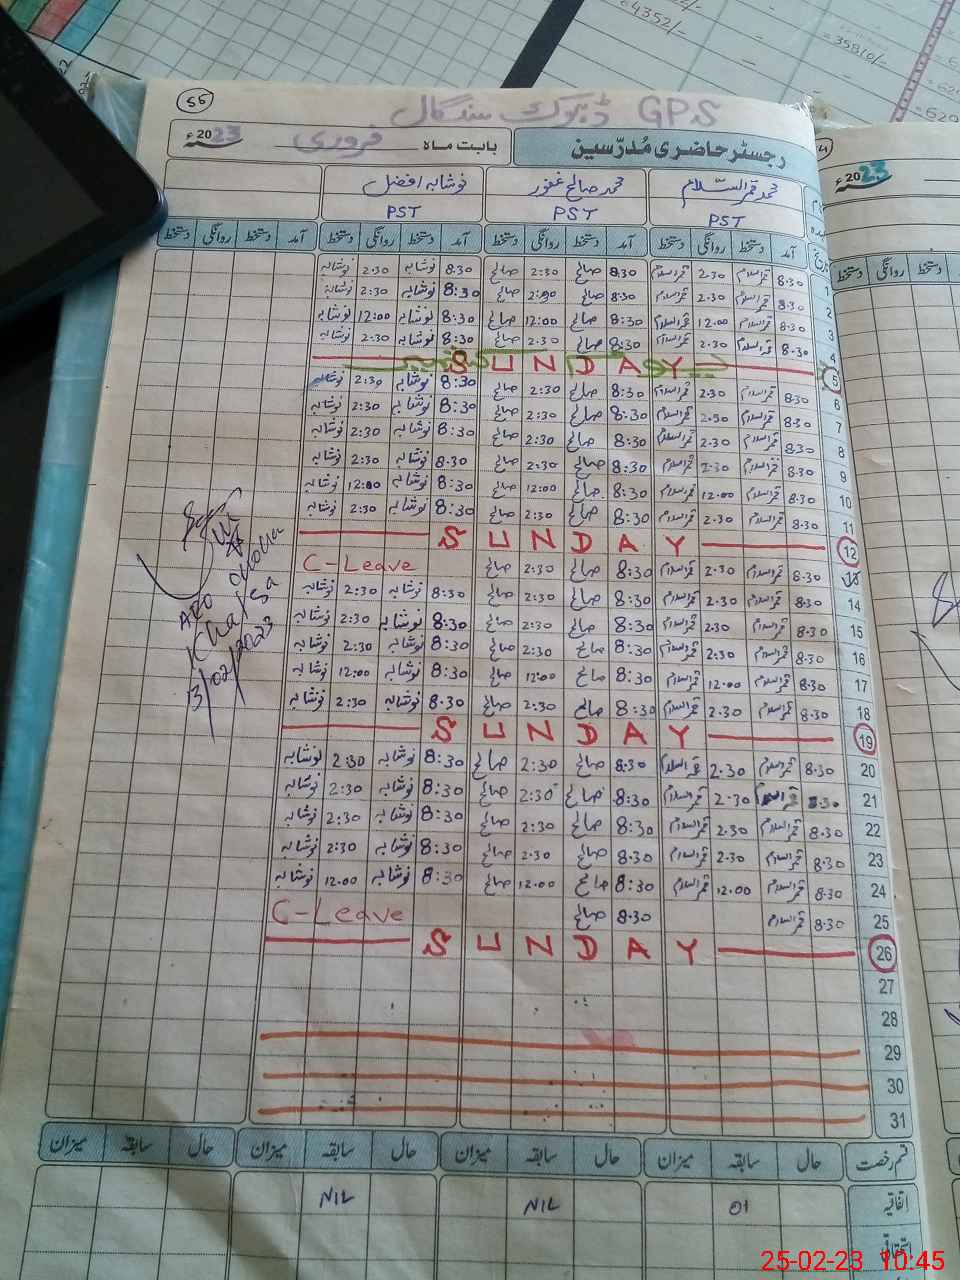 55
GPS ڈہوک سنگال
رجسٹر حاضری مُدرّسین بابت ماہ فروری 2023ء
محمد قمر السّلام محمد صالح غفور نوشابہ افضل
PST PST PST
تاریخ آمد دستخط روانگی دستخط آمد دستخط روانگی دستخط آمد دستخط روانگی دستخط آمد دستخط روانگی دستخط
1 8.30 قمرالسلام 2.30 قمرالسلام 8.30 صالح 2:30 صالح 8.30 نوشابہ 2.30 نوشابہ
2 8.30 قمرالسلام 2.30 قمرالسلام 8.30 صالح صالح 8:30 نوشابہ 2:30 نوشابہ
3 8.30 قمرالسلام 12.00 قمرالسلام 8:30 صالح 12:00 صالح 8:30 نوشابہ 12:00 نوشابہ
4 8.30 قمرالسلام 2.30 قمرالسلام 8:30 صالح 2:30 صالح 8:30 نوشابہ 2:30 نوشابہ
5 SUNDAY
6 8.30 قمرالسلام 2.30 قمرالسلام 8:30 صالح 2:30 صالح 8:30 نوشابہ 2:30 نوشابہ
7 8.30 قمرالسلام 2.30 قمرالسلام 8:30 صالح 2:30 صالح 8:30 نوشابہ 2:30 نوشابہ
8 8.30 قمرالسلام 2.30 قمرالسلام 8:30 صالح 2:30 صالح 8:30 نوشابہ 2:30 نوشابہ
9 8.30 قمرالسلام 2.30 قمرالسلام 8:30 صالح 2:30 صالح 8.30 نوشابہ 2:30 نوشابہ
10 8.30 قمرالسلام 12.00 قمرالسلام 8:30 صالح 12:00 صالح 8:30 نوشابہ 12:00 نوشابہ
11 8.30 قمرالسلام 2.30 قمرالسلام 8:30 صالح 2:30 صالح 8:30 نوشابہ 2:30 نوشابہ
12 SUNDAY
13 8.30 قمرالسلام 2.30 قمرالسلام 8:30 صالح 2:30 صالح C-Leave
14 8.30 قمرالسلام 2.30 قمرالسلام 8:30 صالح 2:30 صالح 8:30 نوشابہ 2:30 نوشابہ
15 8.30 قمرالسلام 2.30 قمرالسلام 8:30 صالح 2:30 صالح 8:30 نوشابہ 2:30 نوشابہ
16 8.30 قمرالسلام 2.30 قمرالسلام 8:30 صالح 2:30 صالح 8:30 نوشابہ 2:30 نوشابہ
17 8.30 قمرالسلام 12.00 قمرالسلام 8:30 صالح 12:00 صالح 8:30 نوشابہ 12:00 نوشابہ
18 8.30 قمرالسلام 2.30 قمرالسلام 8:30 صالح 2:30 صالح 8.30 نوشابہ 2:30 نوشابہ
19 SUNDAY
20 8.30 قمرالسلام 2.30 قمرالسلام 8.30 صالح 2:30 صالح 8:30 نوشابہ 2:30 نوشابہ
21 8.30 قمرالسلام 2.30 قمرالسلام 8:30 صالح 2:30 صالح 8:30 نوشابہ 2:30 نوشابہ
22 8.30 قمرالسلام 2.30 قمرالسلام 8:30 صالح 2:30 صالح 8:30 نوشابہ 2:30 نوشابہ
23 8.30 قمرالسلام 2.30 قمرالسلام 8:30 صالح 2.30 صالح 8:30 نوشابہ 2:30 نوشابہ
24 8.30 قمرالسلام 12.00 قمرالسلام 8:30 صالح 12.00 صالح 8:30 نوشابہ 12.00 نوشابہ
25 8.30 قمرالسلام 8.30 صالح C-Leave
26 SUNDAY
27
28
29
30
31
AEO
13/02/2023
قسم رخصت حال سابقہ میزان حال سابقہ میزان حال سابقہ میزان حال سابقہ میزان
اتفاقیہ 01 NIL NIL
2023ء
دستخط روانگی دستخط
4352/-
35810/-
25-02-23 10:45